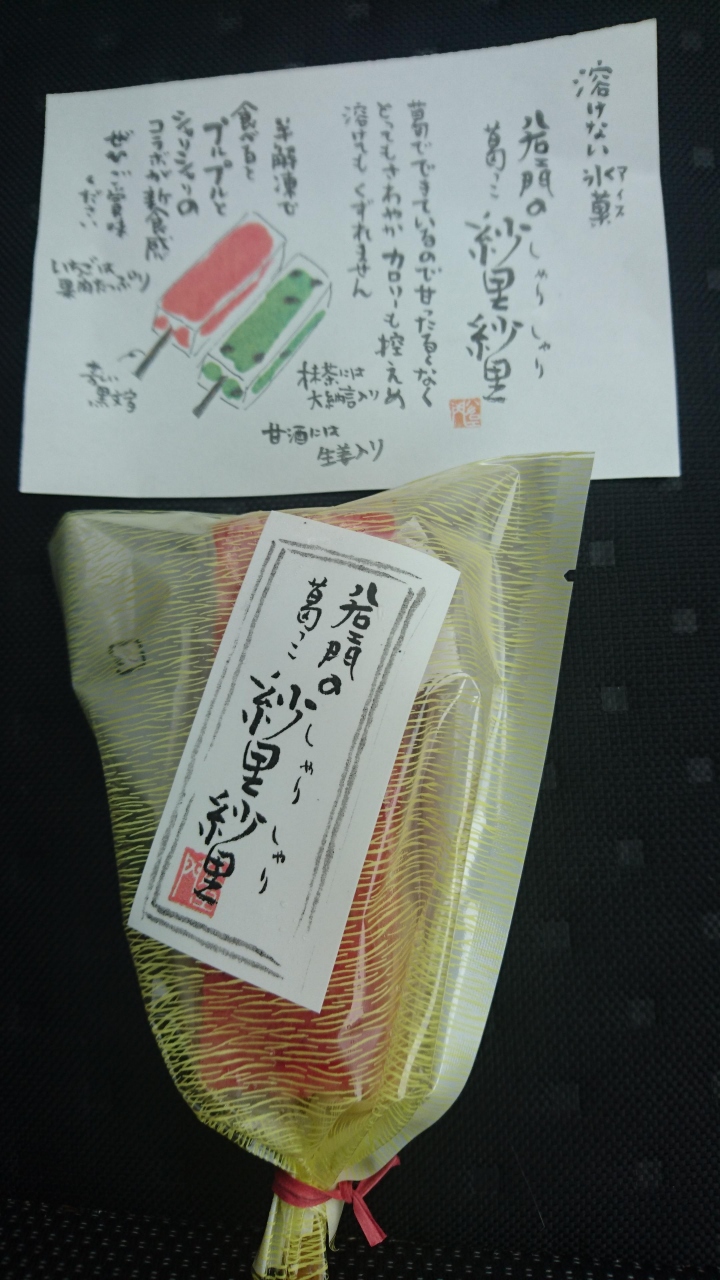 溶けない氷菓
アイス
岩門の
葛っこ
紗里紗里
しゃり しゃり
葛でできているので甘ったるくなく
とてもさわやか カロリーも控えめ
溶けてもくずれません
半解凍で
食べると
プルプルと
シャリシャリの
コラボが新食感
ぜひご賞味
ください
いちごは
果肉たっぷり
黒文字
抹茶には
大納言入り
甘酒には
生姜入り
岩門の
葛っこ
紗里紗里
しゃり しゃり